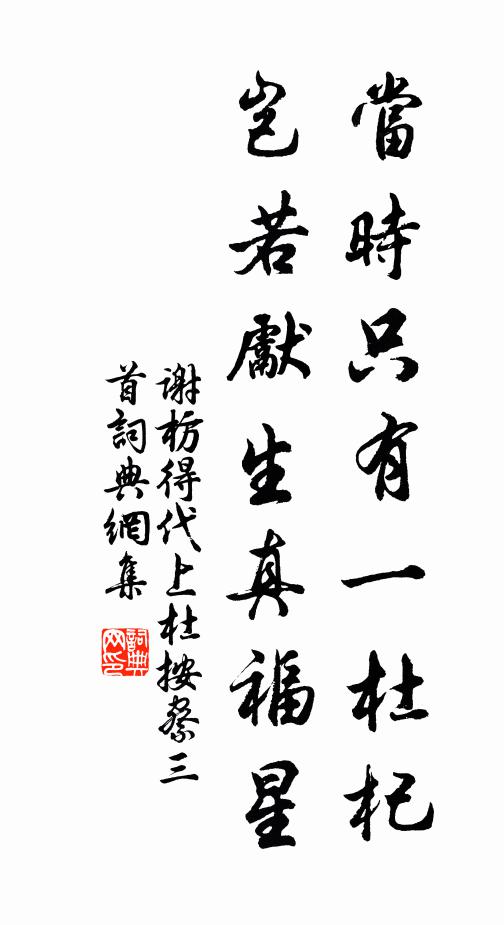 當時只有一杜杞
豈若獻生真福星
謝枋得代上杜按察三
首詞典網集
詞典
网印